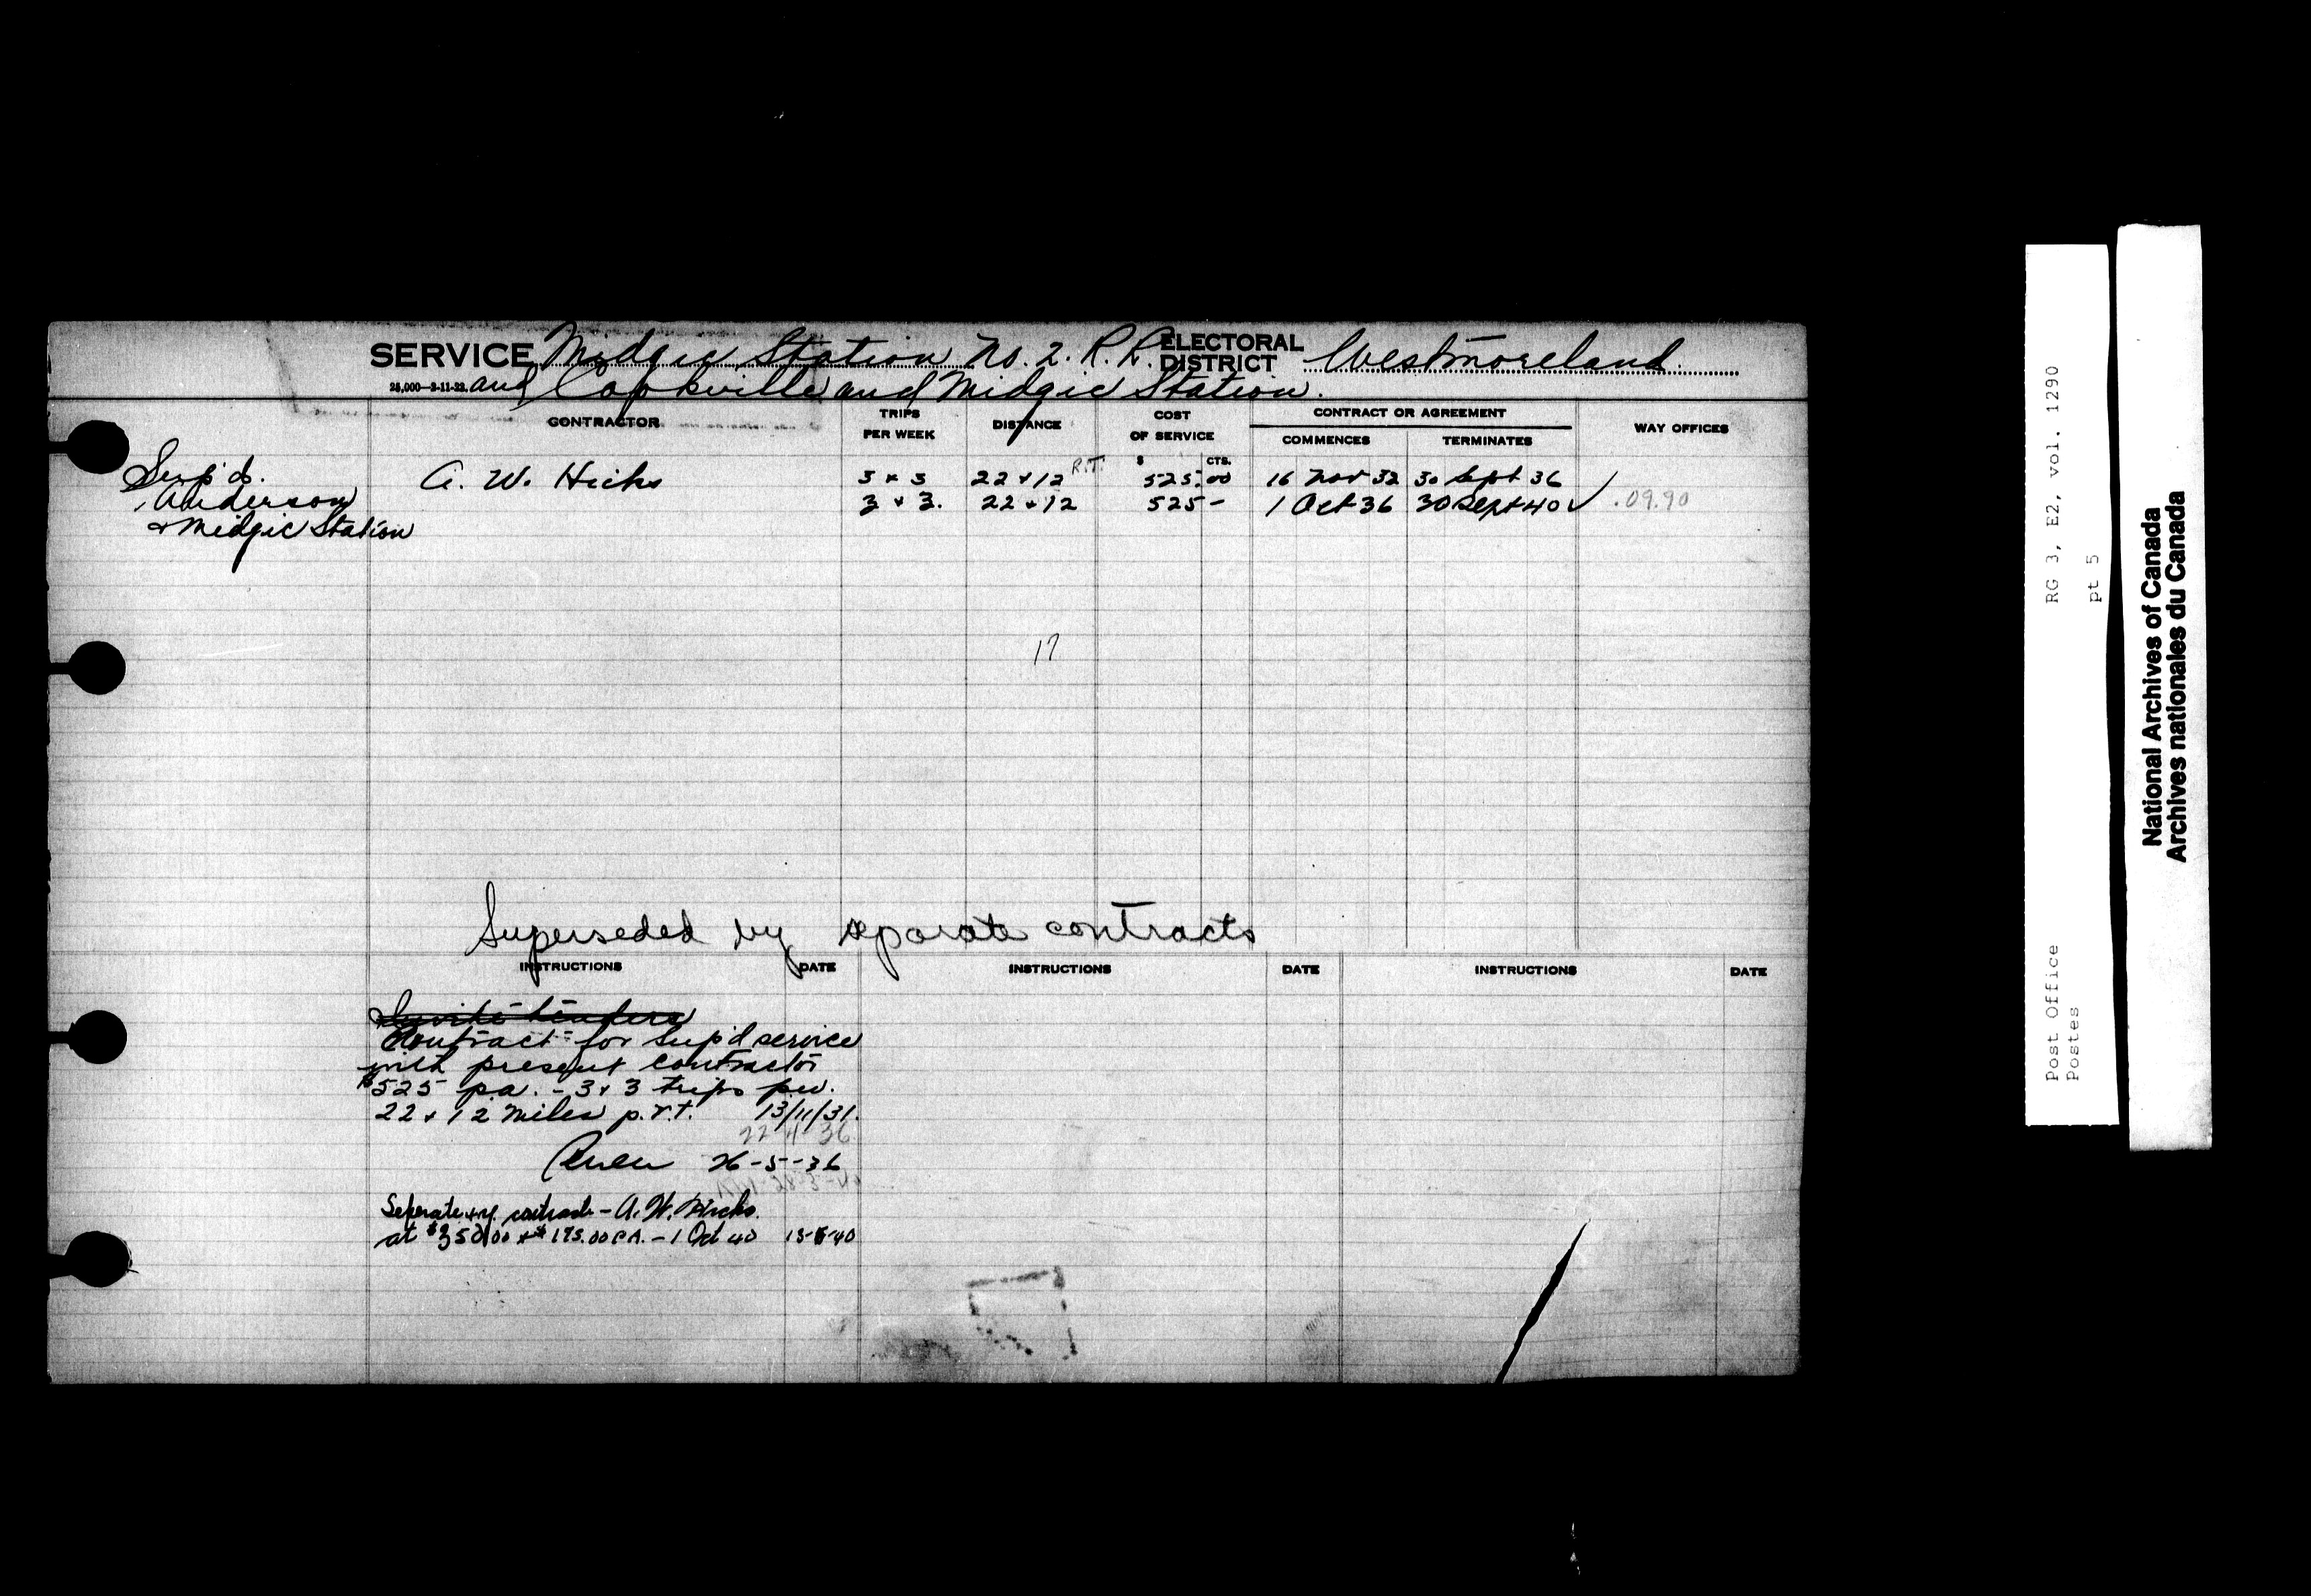 SERVICE Midgic Station No. 2. R. R. ELECTORAL DISTRICT Westmoreland.
25,000—3-11-22. and Cookville and Midgic Station.
CONTRACTOR TRIPS PER WEEK DISTANCE COST OF SERVICE CONTRACT OR AGREEMENT WAY OFFICES
COMMENCES TERMINATES
$ CTS.
Sup'd. A. W. Hicks 3 & 3 22 & 12 R.T. 525.00 16 Nov 32 30 Sept 36
Anderson 3 & 3. 22 & 12 525 - 1 Oct 36 30 Sept 40 ✓ .09.90
& Midgic Station
17
Superseded by separate contracts
INSTRUCTIONS DATE INSTRUCTIONS DATE INSTRUCTIONS DATE
Invite tenders
Contract for Sup'd service
with present contractor
$525 pa. - 3 & 3 trips pw.
22 & 12 miles p.r.t. 13/11/31.
22-4-36
Renew 26-5-36
28-3-40
Seperate contracts - A. W. Hicks.
at $350.00 & $175.00 P.A. - 1 Oct 40
Post Office RG 3, E2, vol. 1290
Postes pt 5
National Archives of Canada
Archives nationales du Canada